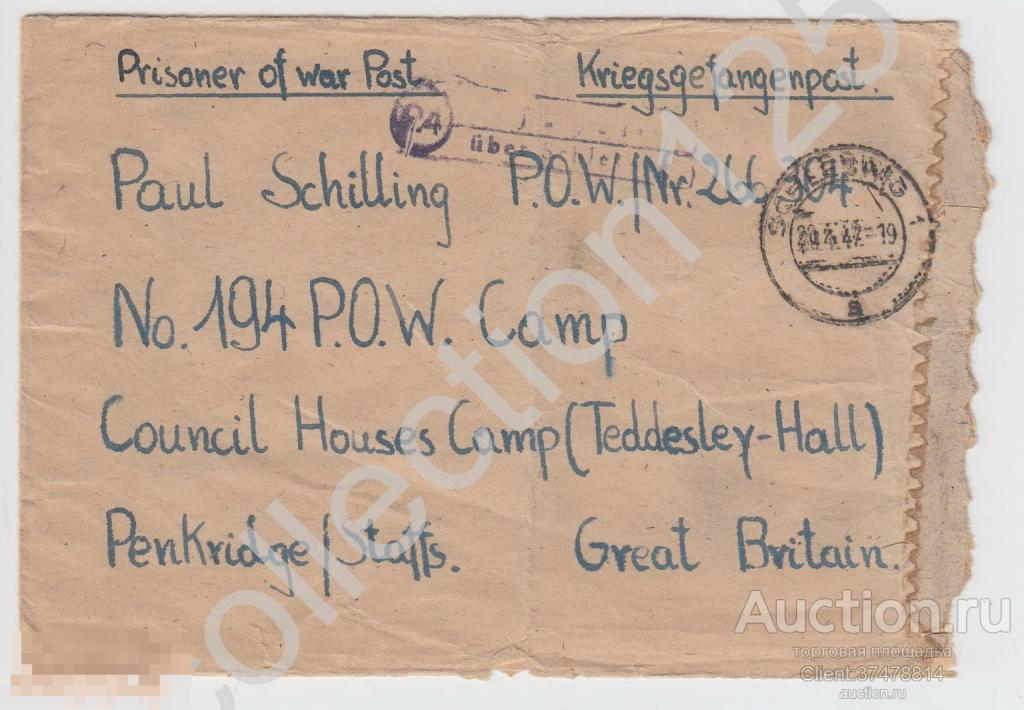 Prisoner of war Post Kriegsgefangenpost.
24
über
Paul Schilling P.O.W./Nr. 266304
SCHLESWIG 1
20.4.47-19
a
No. 194 P.O.W. Camp
Council Houses Camp (Teddesley-Hall)
Penkridge/Staffs. Great Britain.
Collection125
Auction.ru
торговая площадка
Client:37478814
auction.ru